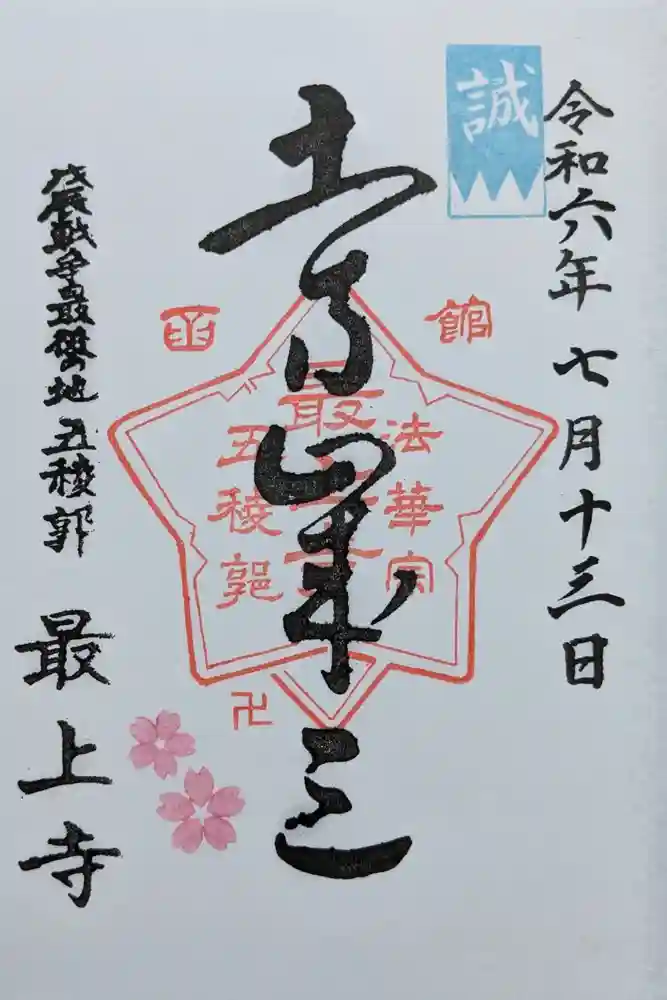 令和六年 七月十三日
誠
土方歳三
函館
法華宗
最上寺
五稜郭
卍
戊辰戦争最後の地 五稜郭
最上寺